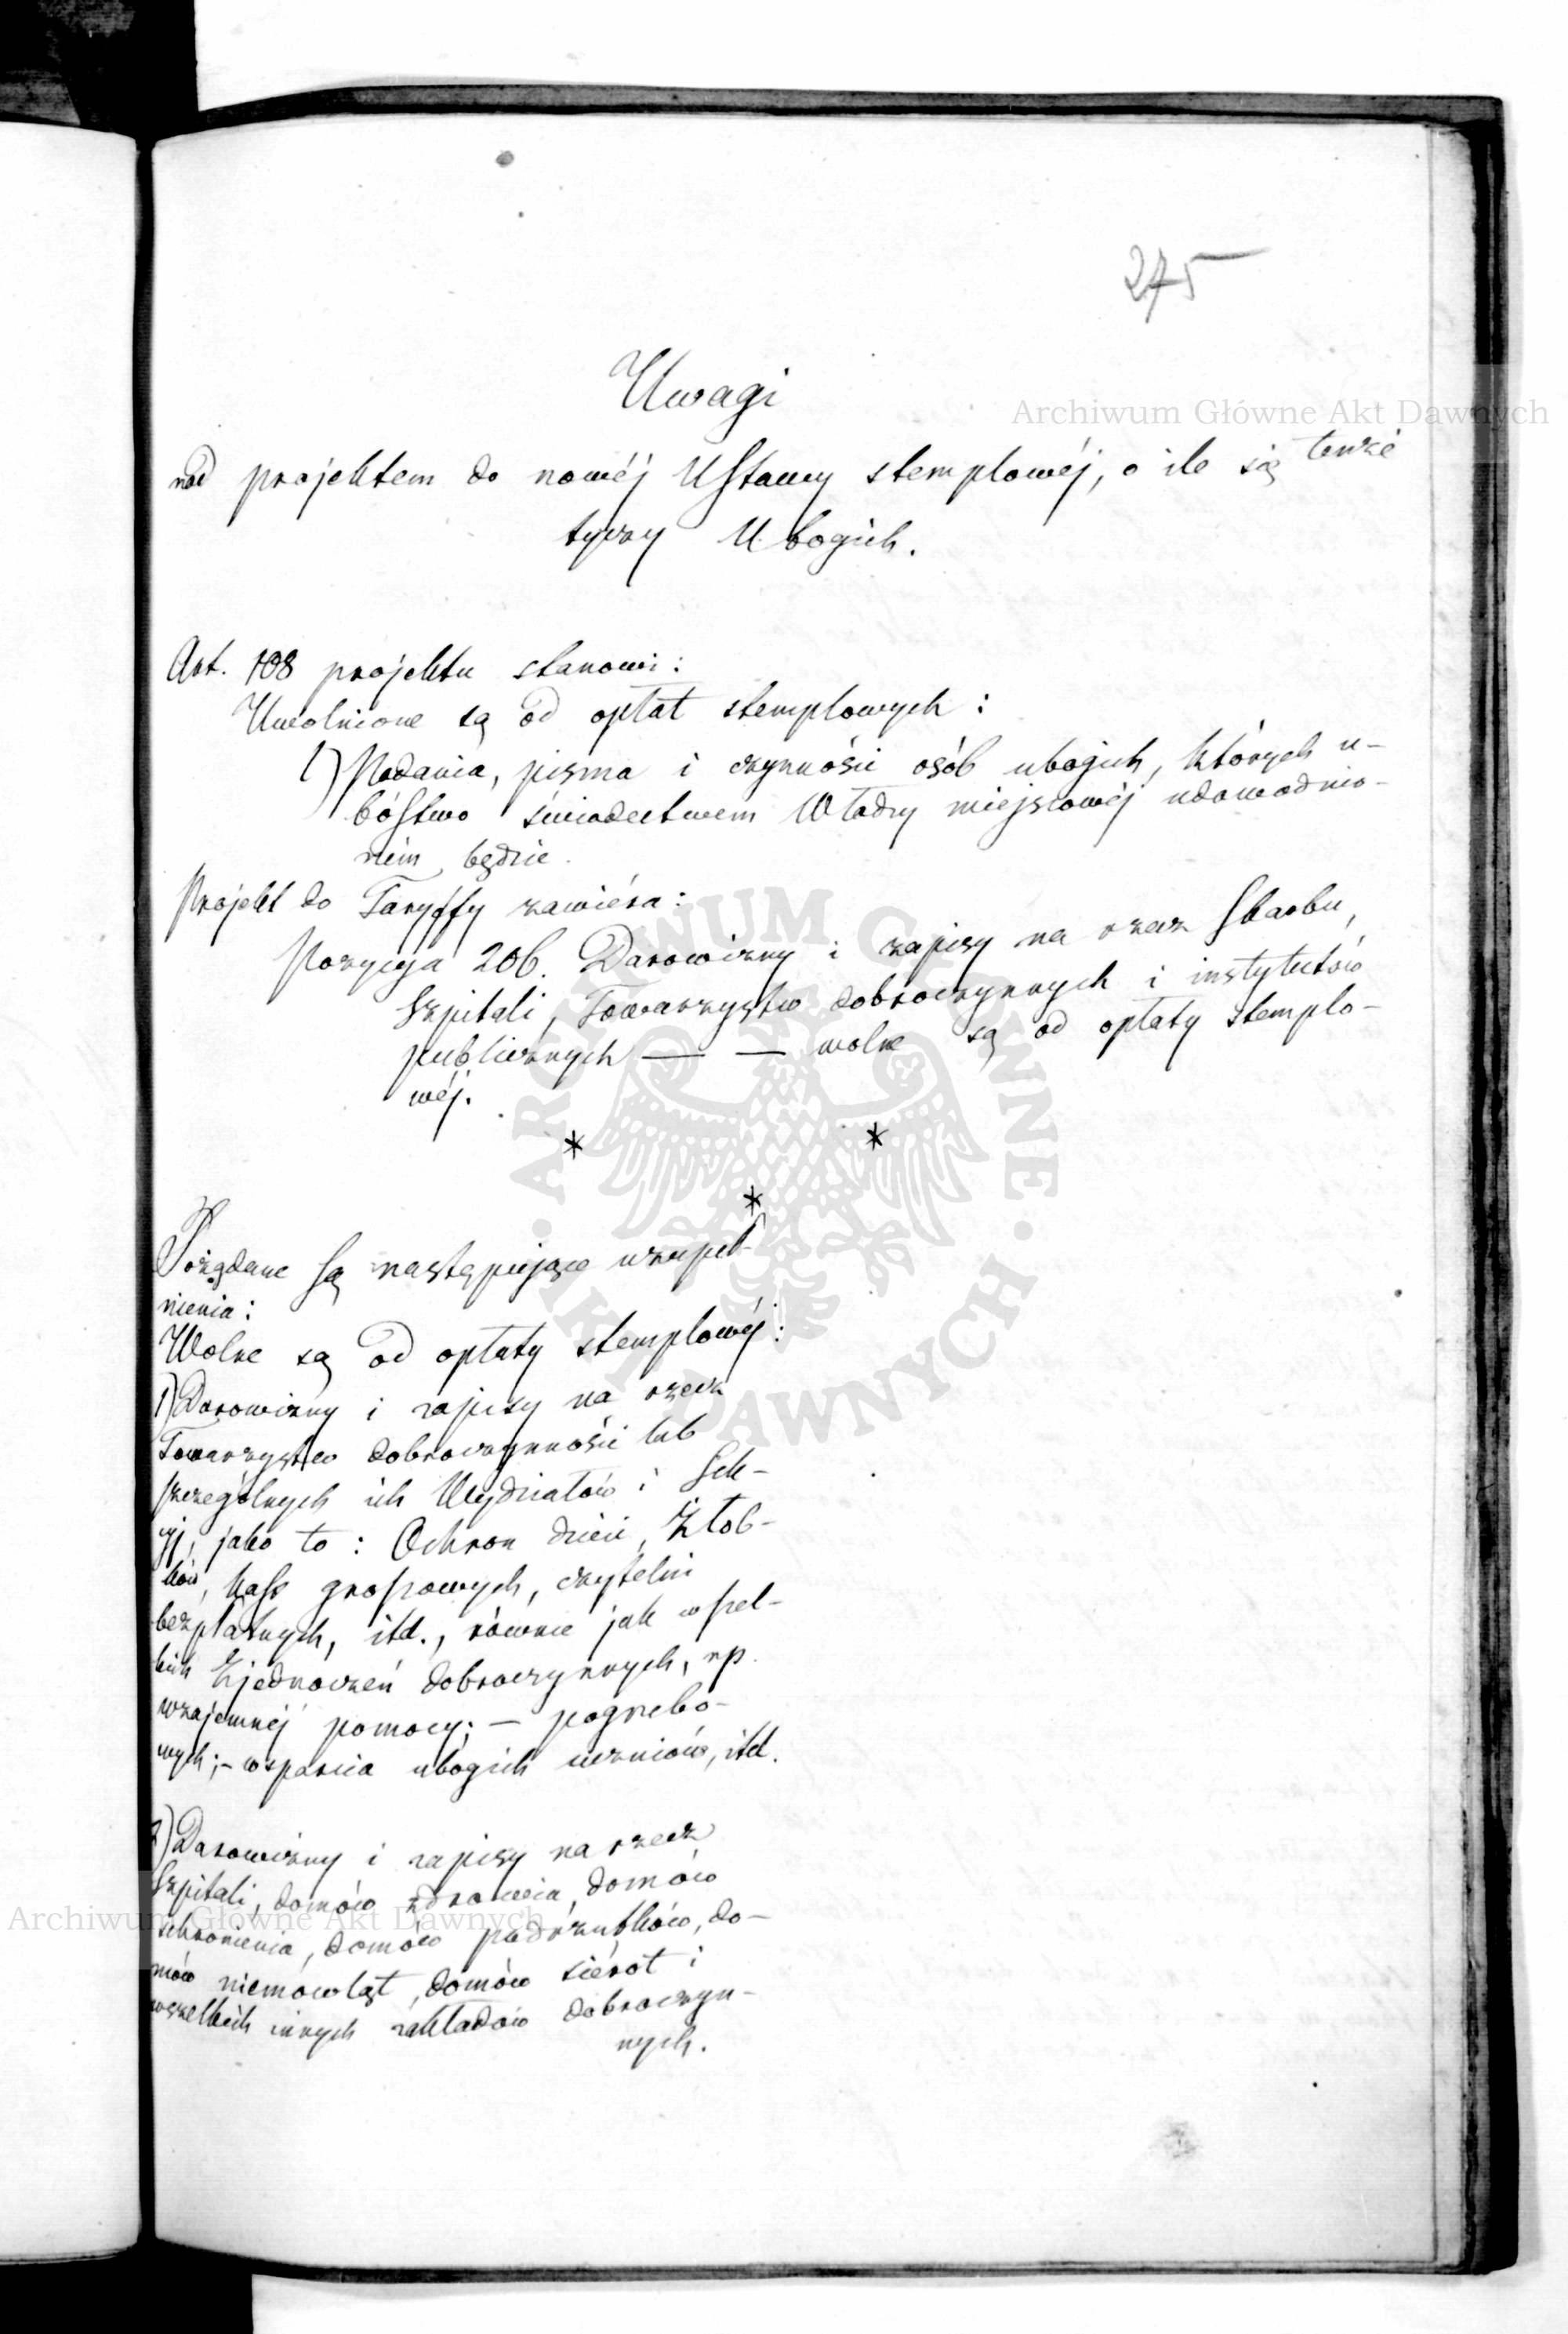 275
Uwagi
nad projektem do nowéj Ustawy stemplowéj, o ile się tenże
tyczy Ubogich.
Art. 108 projektu stanowi:
Uwolnione są od opłat stemplowych:
1) Podania, pisma i czynności osób ubogich, których u-
bóstwo świadectwem Władzy miejscowéj udowodnio-
ném będzie.
Projekt do Taryffy zawiéra:
Pozycya 206. Darowizny i zapisy na rzecz Skarbu,
Szpitali, Towarzystw dobroczynnych i instytutów
publicznych — — wolne są od opłaty stemplo-
wéj.
* *
*
Pożądane są następujące uzupeł-
nienia:
Wolne są od opłaty stemplowéj:
1) Darowizny i zapisy na rzecz
Towarzystw dobroczynności lub
szczególnych ich Wydziałów i Sek-
cyj, jako to: Ochron dzieci, Żłob-
ków, kass groszowych, czytelni
bezpłatnych, itd., równie jak wszel-
kich Zjednoczeń dobroczynnych, np.
wzajemnéj pomocy; — pogrzebo-
wych; — wsparcia ubogich uczniów, itd.
2) Darowizny i zapisy na rzecz
Szpitali, domów zdrowia, domów
schronienia, domów podrzutków, do-
mów niemowląt, domów siérot i
wszelkich innych zakładów dobroczyn-
nych.
Archiwum Główne Akt Dawnych
ARCHIWUM GŁÓWNE AKT DAWNYCH
Archiwum Główne Akt Dawnych